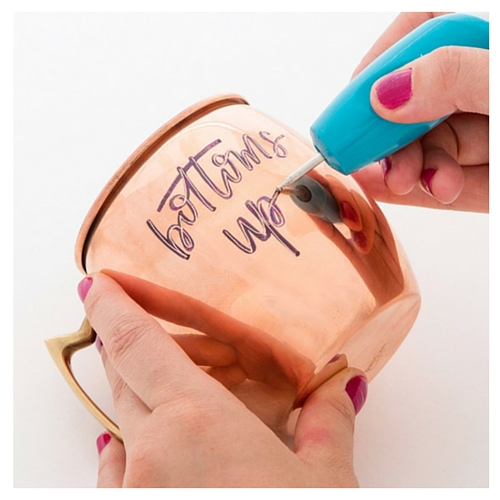 bottoms
up